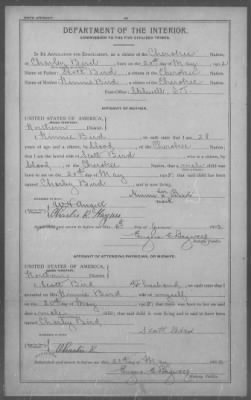 BIRTH AFFIDAVIT.
DEPARTMENT OF THE INTERIOR.
COMMISSION TO THE FIVE CIVILIZED TRIBES.
IN RE APPLICATION FOR ENROLLMENT, as a citizen of the Cherokee Nation,
of Charley Bird, born on the 20th day of May, 1902
Name of Father: Scott Bird a citizen of the Cherokee Nation.
Name of Mother: Nannie Bird a citizen of the Cherokee Nation.
Post-Office:
AFFIDAVIT OF MOTHER.
UNITED STATES OF AMERICA,
INDIAN TERRITORY,
Northern District.
I, Nannie Bird, on oath state that I am 28
years of age and a citizen, by blood, of the Cherokee Nation;
that I am the lawful wife of Scott Bird, who is a citizen, by
blood, of the Cherokee Nation; that a male child was
born to me on 20th day of May, 1902; that said child has been
named Charley Bird, and is now living.
Nannie Bird
Subscribed and sworn to before me this day of 190
Notary Public.
AFFIDAVIT OF ATTENDING PHYSICIAN, OR MIDWIFE.
UNITED STATES OF AMERICA,
INDIAN TERRITORY,
Northern District.
I, Scott Bird, a husband, on oath state that I
attended on Mrs. Nannie Bird, wife of myself
on the 20 day of May, 1902; that there was born to her on said date a
male child; that said child is now living and is said to have been
named Charley Bird
Scott Bird
Subscribed and sworn to before me this day of 190
Notary Public.